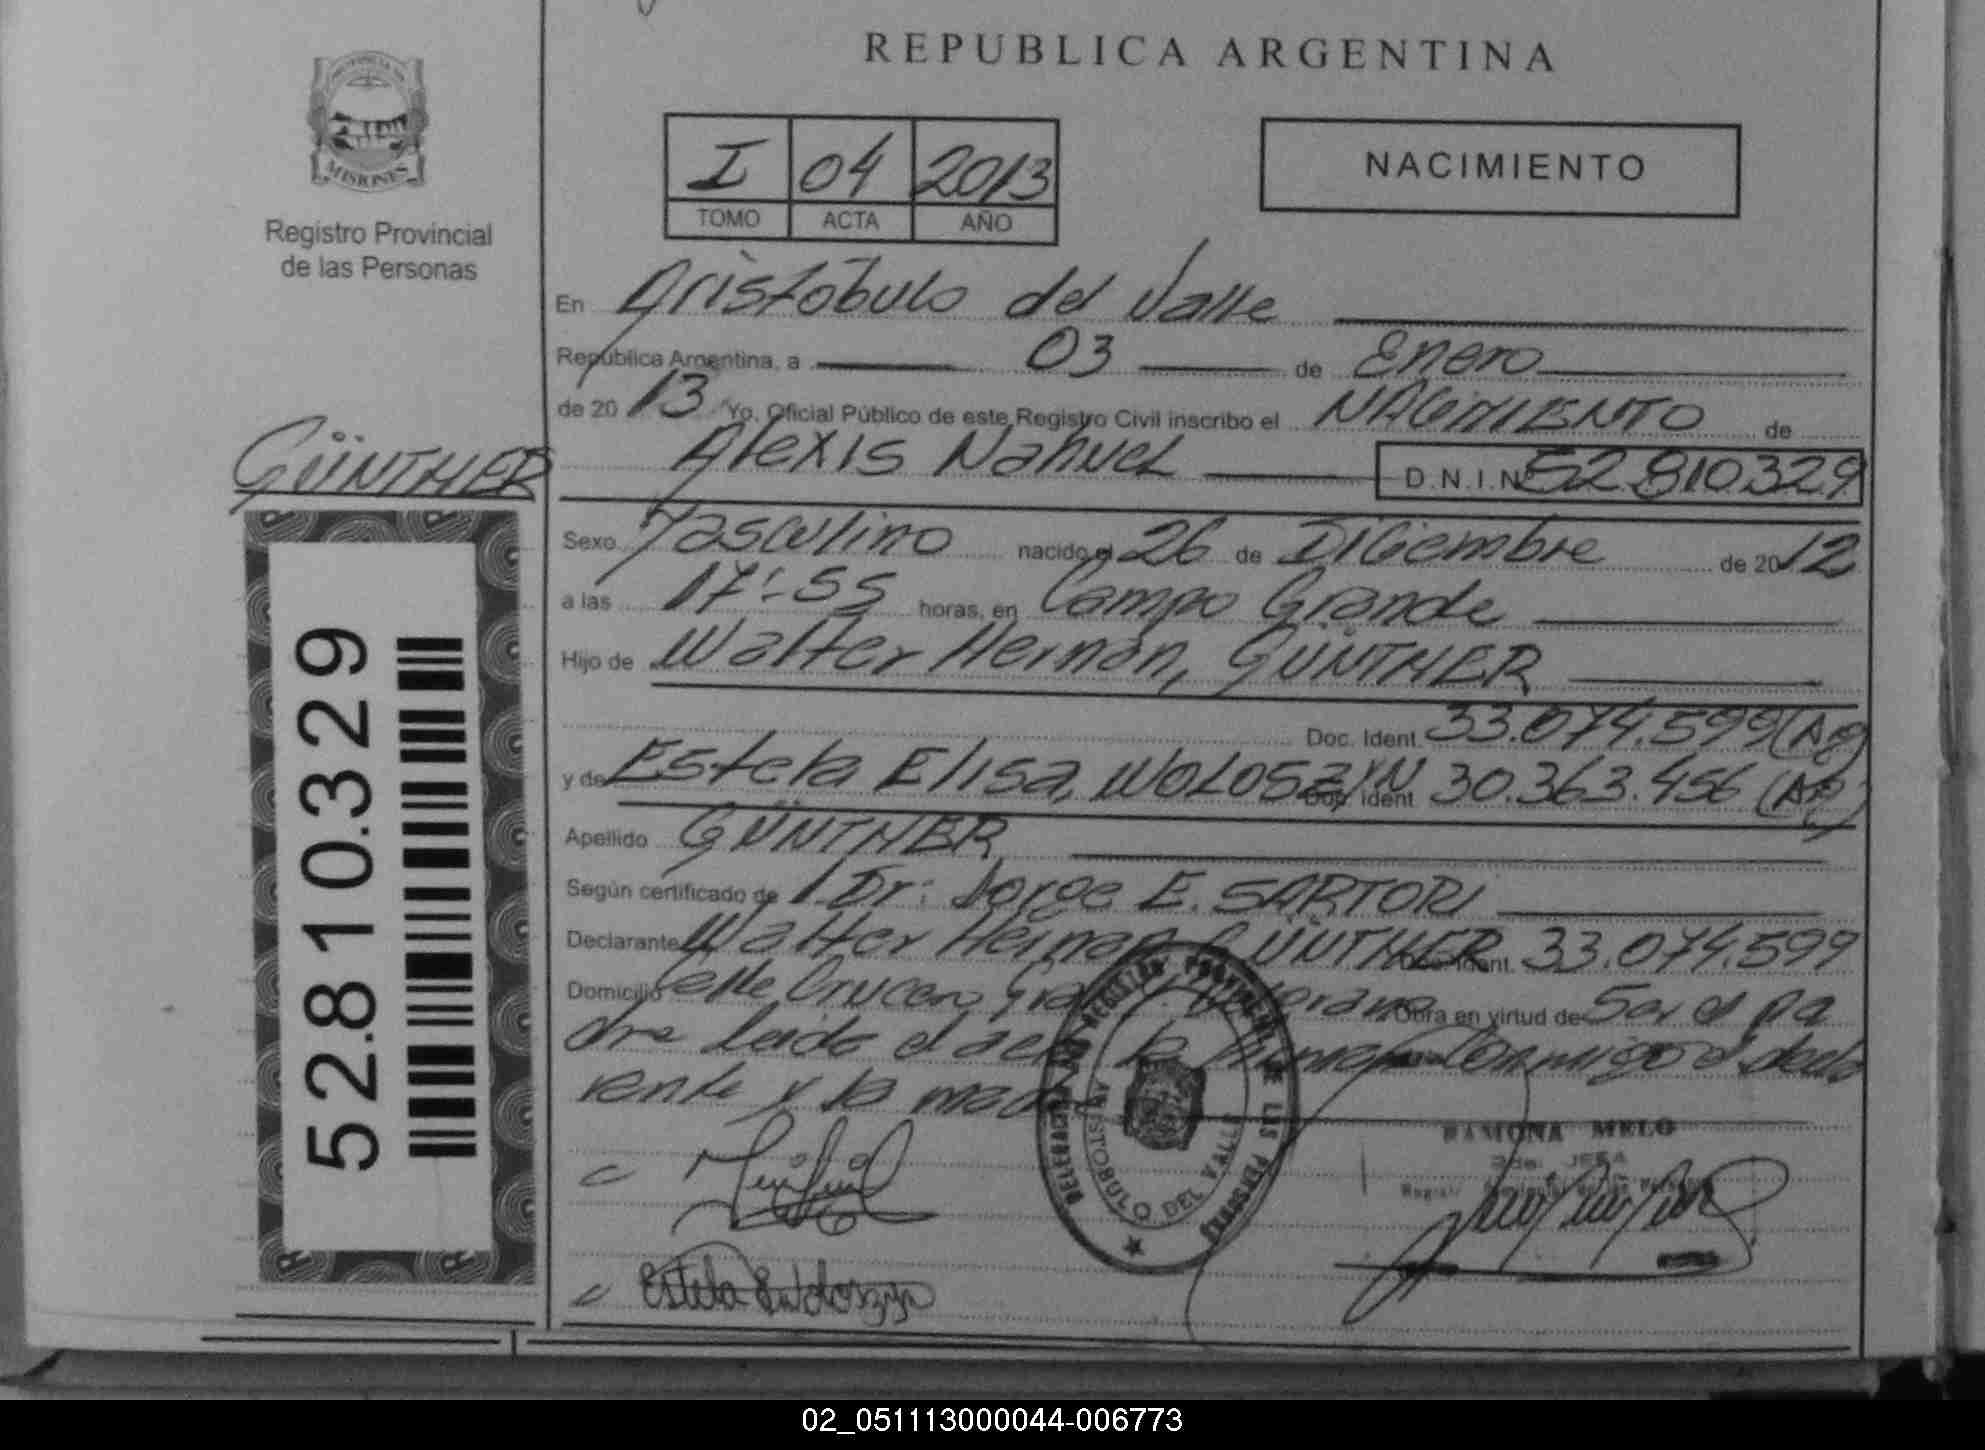 REPUBLICA ARGENTINA
PROVINCIA DE
MISIONES
Registro Provincial
de las Personas
I 04 2013
TOMO ACTA AÑO
NACIMIENTO
En Aristóbulo del Valle
República Argentina, a 03 de Enero
de 2013 Yo, Oficial Público de este Registro Civil inscribo el NACIMIENTO de
GÜNTHER
Alexis Nahuel D.N.I.Nº 52.810.329
Sexo Masculino nacido el 26 de Diciembre de 2012
a las 17:55 horas, en Campo Grande
Hijo de Walter Hernán, GÜNTHER
Doc. Ident. 33.074.599 (Ag)
y de Estela Elisa, WOLOSZYN Doc. Ident. 30.363.456 (Ag)
Apellido GÜNTHER
Según certificado de Dr: Jorge E. SARTORI
Declarante Walter Hernán GÜNTHER Doc. Ident. 33.074.599
Domicilio Calle Crucero Gral Obra en virtud de Ser el pa
dre leido el acta la firman conmigo el decla
rante y la madre
52.810.329
DELEGACION DEL REGISTRO PROVINCIAL DE LAS PERSONAS
ARISTOBULO DEL VALLE
RAMONA MELO
JEFA
Estela E. Woloszyn
02_051113000044-006773